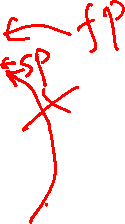 fp
sp